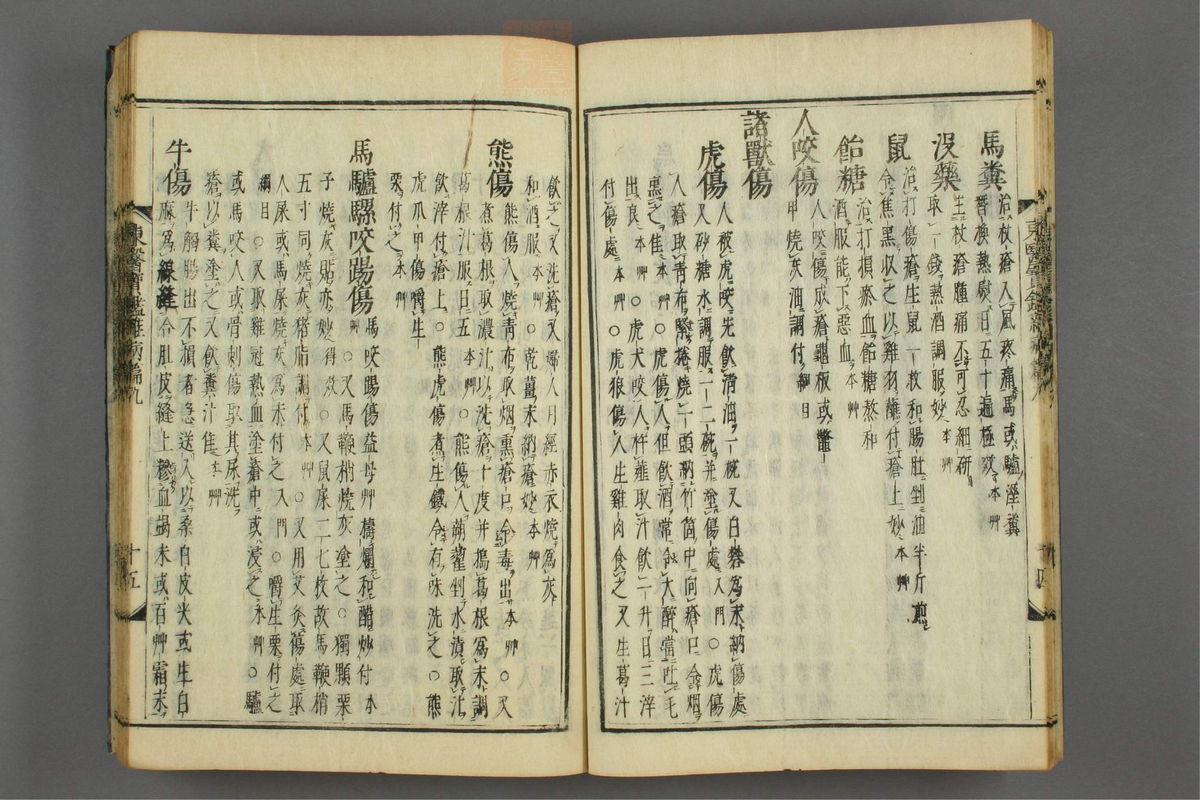 馬糞 治杖瘡入風疼痛馬或驢溼糞
替換熱熨日五十遍極效本艸
沒藥 主杖瘡腫痛不可忍細硏
取一錢熱酒調服妙本艸
鼠 治打傷瘡生鼠一枚和腸肚剉油半斤煎
令焦黑收之以雞羽蘸付瘡上妙本艸
飴糖 治打損瘀血飴糖熬和
酒服能下惡血本艸
人咬傷 人咬傷成瘡龜板或鼈
甲燒灰油調付綱目
諸獸傷
虎傷 人被虎咬先飮淸油一椀又白礬爲末納傷處
又砂糖水調服一二椀幷塗傷處入門○虎傷
人瘡取靑布緊捲燒一頭納竹筒中向瘡口令烟
熏之佳本艸○虎傷人但飮酒常令大醉當吐毛
出良本艸○虎犬咬人杵薤取汁飮一升日三滓
付傷處本艸○虎狼傷人生雞肉食之又生葛汁
東醫寶鑑雜病篇九 十四
飮之又洗瘡又婦人月經赤衣燒爲灰
和酒服本艸○乾薑末納瘡妙本艸
熊傷 熊傷人燒靑布取烟熏瘡口令毒出本艸○又
煮葛根取濃汁以洗瘡十度幷搗葛根爲末調
葛根汁服日五本艸○熊傷人蒴藋剉水漬取汁
飮滓付瘡上○熊虎傷煮生鐵令有味洗之○熊
虎爪甲傷嚼生
栗付之本艸
馬驢騾咬踢傷 馬咬踢傷益母艸擣爛和醋炒付本
艸○又馬鞭梢燒灰塗之○獨顆栗
子燒灰貼亦妙得效○又鼠屎二七枚故馬鞭梢
五寸同燒灰猪脂調付本艸○又用艾灸傷處取
人屎或馬屎燒灰爲末付之入門○嚼生栗付之
綱目○又雞冠熱血塗瘡中或浸之本艸○驢
或馬咬人或骨刺傷取其尿洗
瘡以糞塗之又飮糞汁佳本艸
牛傷 牛觝腸出不損者急送入以桑白皮尖或生白
麻爲線縫合肚皮縫上糝血竭末或百艸霜末
東醫寶鑑雜病篇九 十五